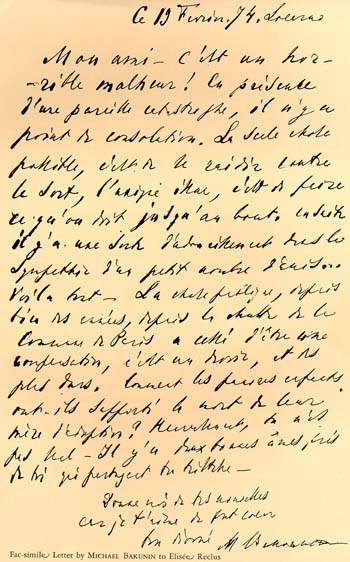 Ce 19 Février. 74. Locarno
Mon ami – c'est un hor-
-rible malheur! En présence
d'une pareille catastrophe, il n'y a
point de consolation. La seule chose
possible, c'est de se raidir contre
le sort, c'est de faire
ce qu'on doit jusqu'au bout. ensuite
il y a une sorte d'adoucissement dans la
sympathie d'un petit nombre d'amis.
Voila tout – La chose publique, depuis
bien des années, depuis la chute de la
Commune de Paris a cessé d'être une
compensation, c'est un devoir, et des
plus durs. Comment les pauvres enfants
ont-ils supporté la mort de leur
mère d'adoption? Heureusement, tu n'es
pas seul – Il y a deux bonnes âmes, près
de toi qui partagent ta tristesse –
Donne moi de tes nouvelles
car je t'aime de tout coeur
ton dévoué
M. Bakounine
Fac-simile Letter by MICHAEL BAKUNIN to Elisée Reclus